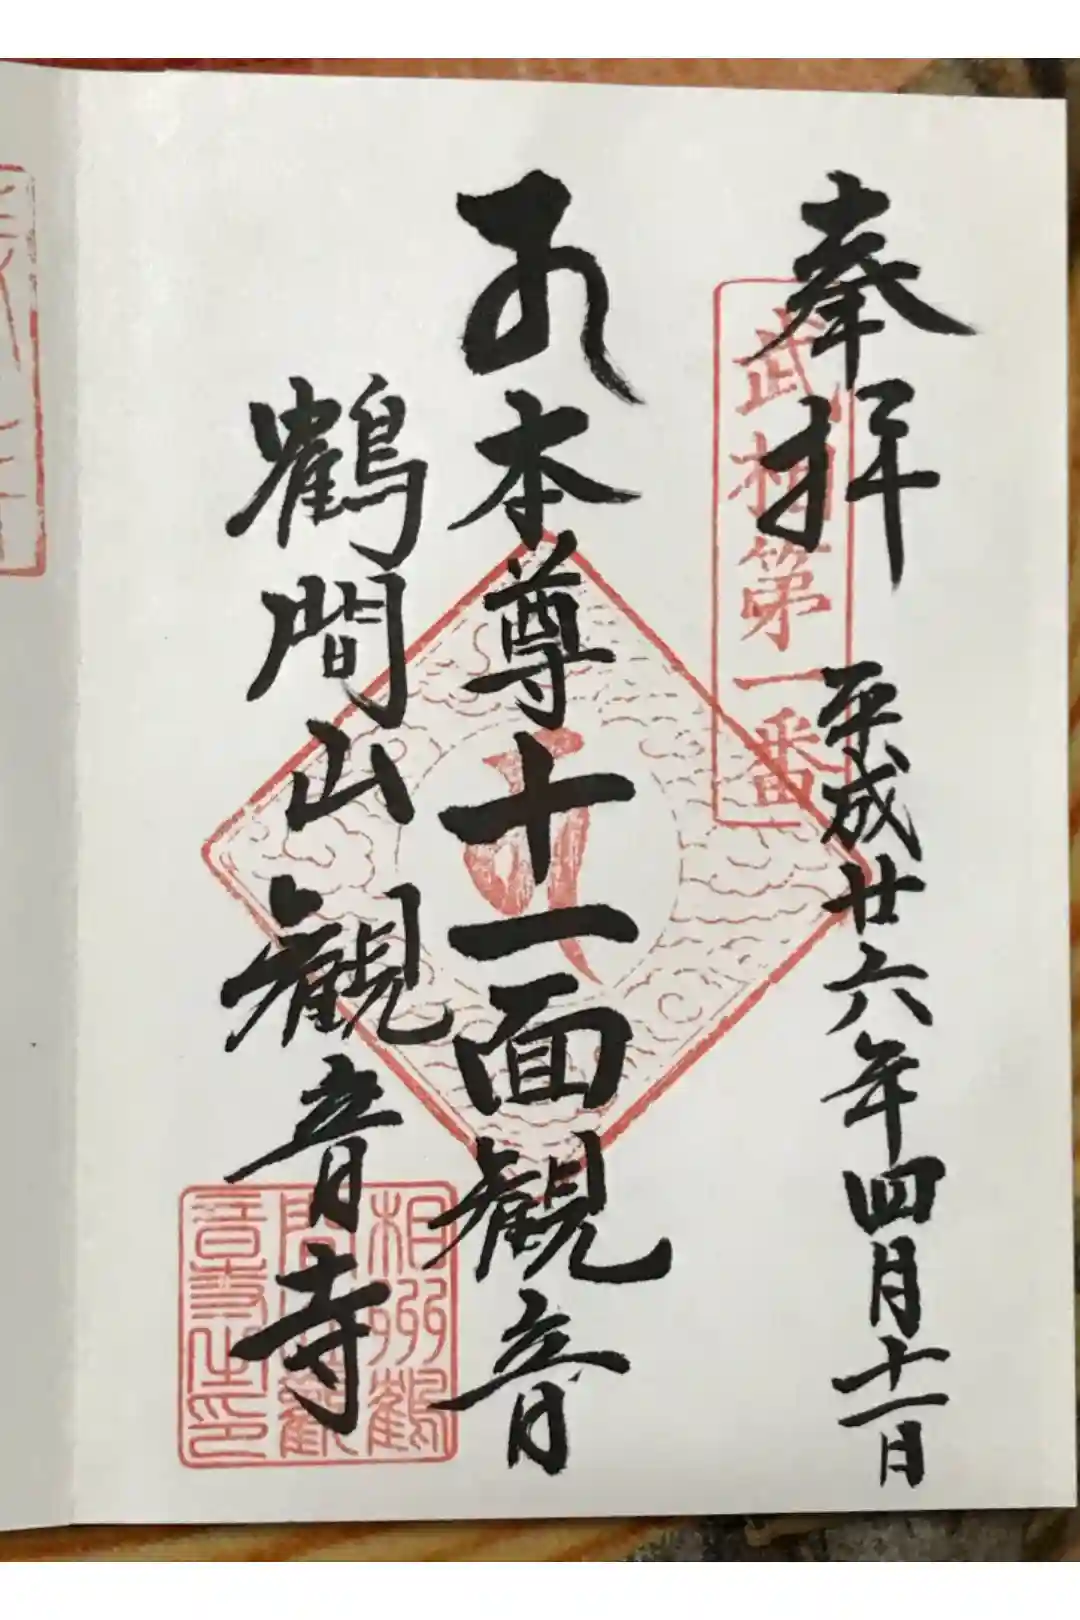 奉拝 平成廿六年四月十一日
武相第一番
本尊十一面観音
鶴間山観音寺
相州鶴
間山観
音寺之印